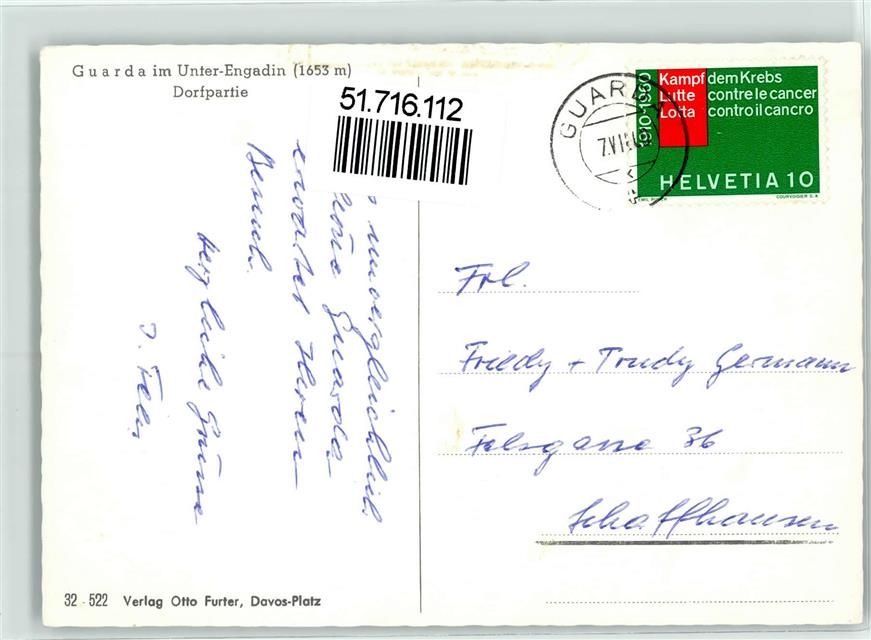 Guarda im Unter-Engadin (1653 m)
Dorfpartie
51.716.112
unvergleichlich
Guarda
erwartet Ihren
Besuch.
herzliche Grüsse
GUARDA
1910-1960
Kampf dem Krebs
Lutte contre le cancer
Lotta contro il cancro
HELVETIA 10
COURVOISIER S.A.
Frl.
Friedy + Trudy Germann
Felsgasse 36
Schaffhausen
32 - 522 Verlag Otto Furter, Davos-Platz